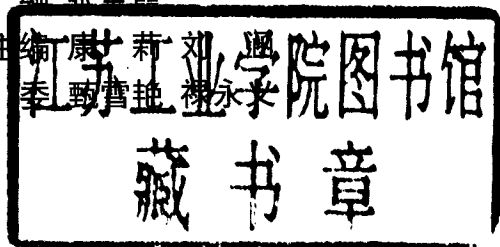 主编 康莉 刘涵
委 甄雪艳 禄永
江苏工业学院图书馆
藏书章